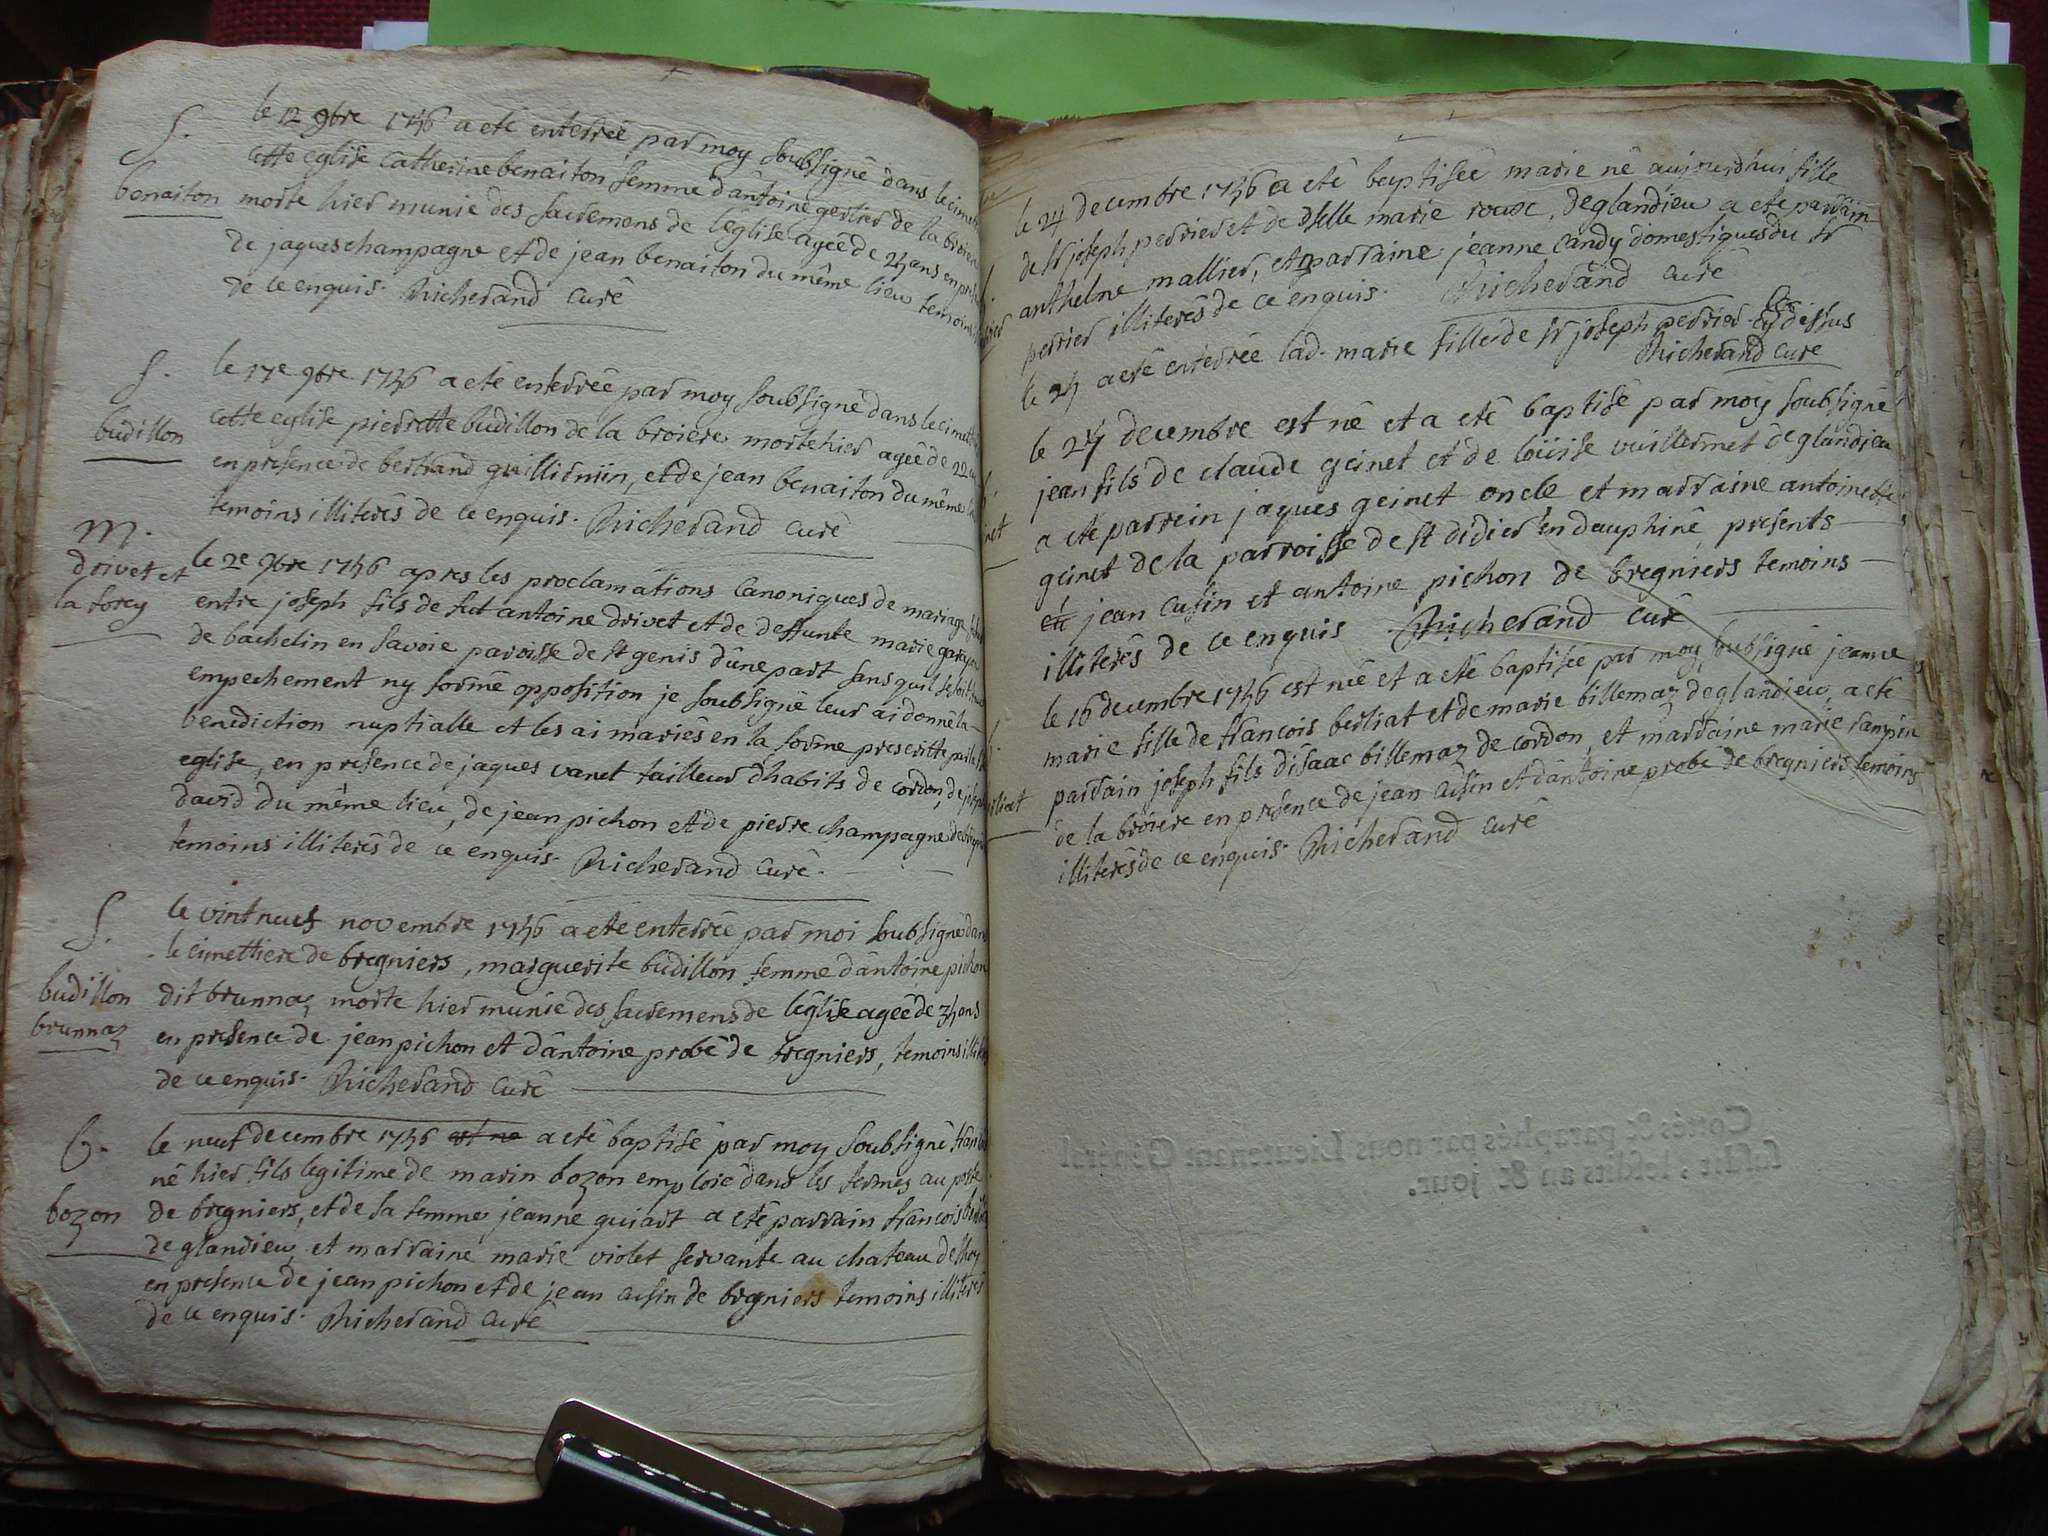 S.
benaiton
le 12 9bre 1746 a eté enterrée par moy soubsigné dans le cimet
cette eglise Catherine benaiton femme d'antoine gerlier de la broiere
morte hier munie des sacremens de l'église agée de ans en pres
de jaques champagne et de jean benaiton du même lieu temoins
de ce enquis. Richerand Curé
S.
budillon
le 17e 9bre 1746 a eté enterrée par moy soubsigné dans le cimett
cette eglise pierrette budillon de la broiere morte hier agée de 22
en presence de bertrand guillermin, et de jean benaiton du même
temoins illiterés de ce enquis. Richerand Curé
M.
drivet et
la forey
le 2e 9bre 1746 apres les proclamations Canoniques de mariage
entre joseph fils de fut antoine drivet et de deffunte marie
de bachelin en Savoie paroisse de st genis d'une part sans quil se soit
empechement ny formé opposition je soubsigné leur ai donné la
benediction nuptialle et les ai mariés en la forme prescritte par la
eglise, en presence de jaques vanet tailleur d'habits de cordon, de
david du même lieu, de jean pichon et de pierre champagne
temoins illiterés de ce enquis. Richerand Curé.
S.
budillon
brunnaz
le vint neuf novembre 1746 a eté enterrée par moi soubsigné dan
le cimettiere de bregniers, marguerite budillon femme d'antoine pichon
dit brunnaz morte hier munie des sacremens de l'église agée de ans
en presence de jean pichon et d'antoine probé de bregniers, temoins
de ce enquis. Richerand Curé
B.
bozon
le neuf decembre 1746 est né a eté baptisé par moy soubsigné
né hier fils legitime de marin bozon emploié dans les fermes au poste
de bregniers, et de sa femme jeanne guiart a eté parrain francois
de glandieu, et marraine marie violet servante au chateau de
en presence de jean pichon et de jean cusin de bregniers temoins illiterés
de ce enquis. Richerand Curé
le 24 decembre 1746 a eté baptisée marie né aujourd'hui fille
de sr joseph perrier et de dselle marie roux, de glandieu a eté parrain
anthelne mallier, et marraine jeanne Candy domestiques du sr
perrier illiterés de ce enquis. Richerand Curé
le a eté enterrée lad. marie fille de sr joseph perrier cy dessus
Richerand Curé
le 24 decembre est né et a eté baptisé par moy soubsigné
jean fils de claude geinet et de loüise vuillermet de glandieu
a eté parrein jaques geinet oncle et marraine antoinette
geinet de la parroisse de st didier en dauphiné, presents
jean cusin et antoine pichon de bregniers temoins
illiterés de ce enquis Richerand Curé
le 16 decembre 1746 est née et a eté baptisée par moy soubsigné jeanne
marie fille de francois berliat et de marie billemaz de glandieu, a eté
parrain joseph fils d'isaac billemaz de cordon, et marraine marie rampin
de la broiere en presence de jean cusin et d'antoine probé de bregniers temoins
illiterés de ce enquis. Richerand Curé
Cotté & paraphés par nous Lieutenant Général
susdit, lesdits an & jour.